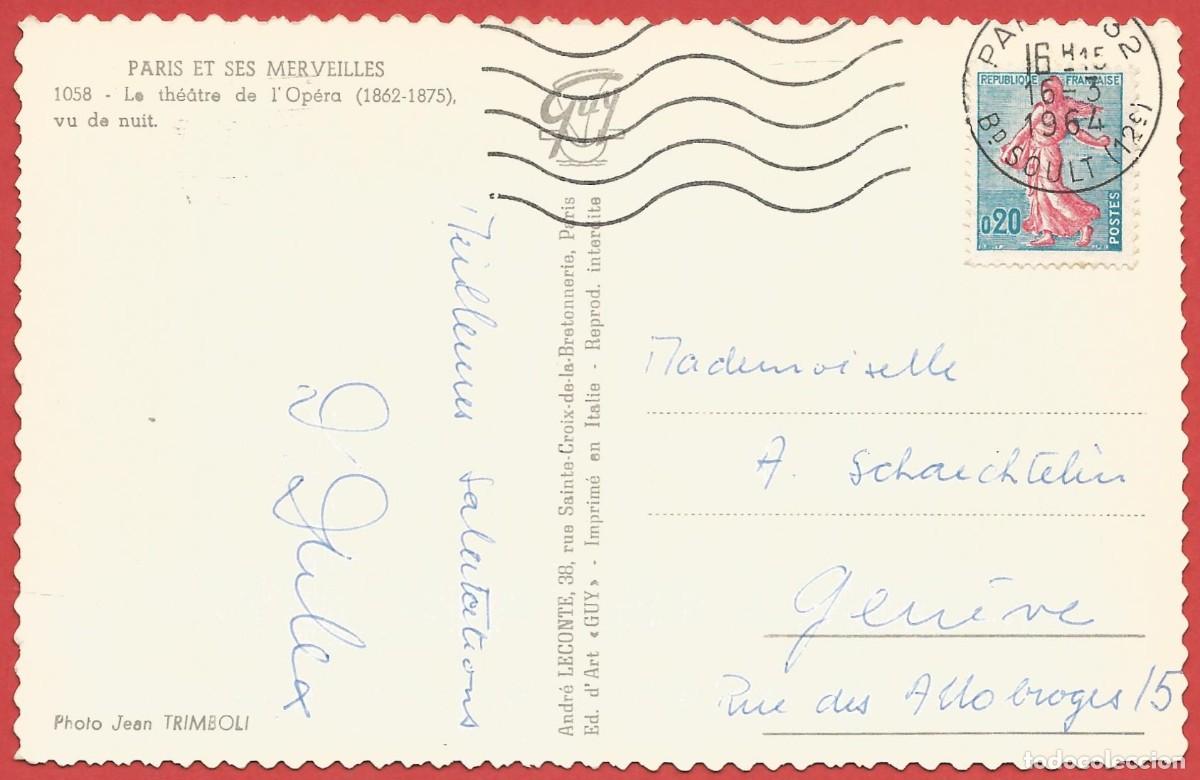 PARIS ET SES MERVEILLES
1058 - Le théâtre de l'Opéra (1862-1875),
vu de nuit.
Guy
16 H 15
16-3
1964
BD SOULT (12E)
REPUBLIQUE FRANÇAISE
0,20
POSTES
Meilleures salutations
André LECONTE, 38, rue Sainte-Croix-de-la-Bretonnerie, Paris
Ed. d'Art «GUY» - Imprimé en Italie - Reprod. interdite
Mademoiselle
A. Schaechtelin
Genève
Rue des Allobroges 15
Photo Jean TRIMBOLI
todocoleccion